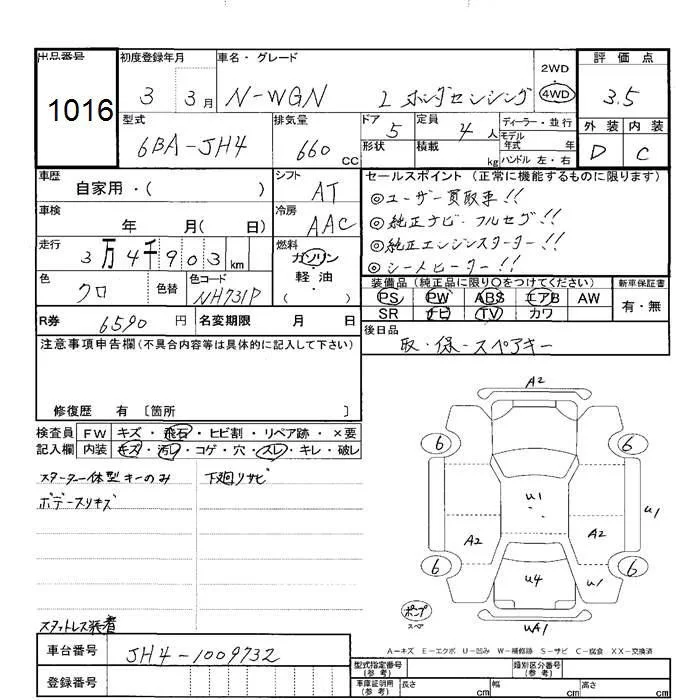 出品番号 初度登録年月 車名・グレード 2WD 4WD 評価点
1016 3 3月 N-WGN L ホンダセンシング 3.5
型式 排気量 ドア 定員 ディーラー・並行 外装 内装
6BA-JH4 660cc 5 4人 モデル年式 年 D C
形状 積載 kg ハンドル 左・右
車歴 シフト セールスポイント (正常に機能するものに限ります)
自家用・( ) AT ◎ユーザー買取車!!
車検 冷房 ◎純正ナビ・フルセグ!!
年 月( 日) AAC ◎純正エンジンスターター!!
走行 燃料 ◎シートヒーター!!
3万4千903km ガソリン
軽油
( )
色 色替 色コード 装備品 (純正品に限り○をつけてください) 新車保証書
クロ NH731P PS PW ABS エアB AW 有・無
SR ナビ TV カワ
R券 6590円 名変期限 月 日 後日品
取・保・スペアキー
注意事項申告欄(不具合内容等は具体的に記入して下さい)
修復歴 有 [箇所 ]
検査員 FW キズ・飛石・ヒビ割・リペア跡・×要
記入欄 内装 キズ・汚れ・コゲ・穴・スレ・キレ・破レ
スターター一体型キーのみ 下廻りサビ
ボデースリキズ
スタットレス装着
A2
6 6
u1
u1
A2 A2
6 u4 u1 6
ポンプ
スペア
uA1
A-キズ E-エクボ U-凹み W-補修跡 S-サビ C-腐食 XX-交換済
車台番号 JH4-1009732
型式指定番号 (参考) 類別区分番号 (参考)
登録番号
車庫証明用 (参考) 長さ cm 幅 cm 高さ cm